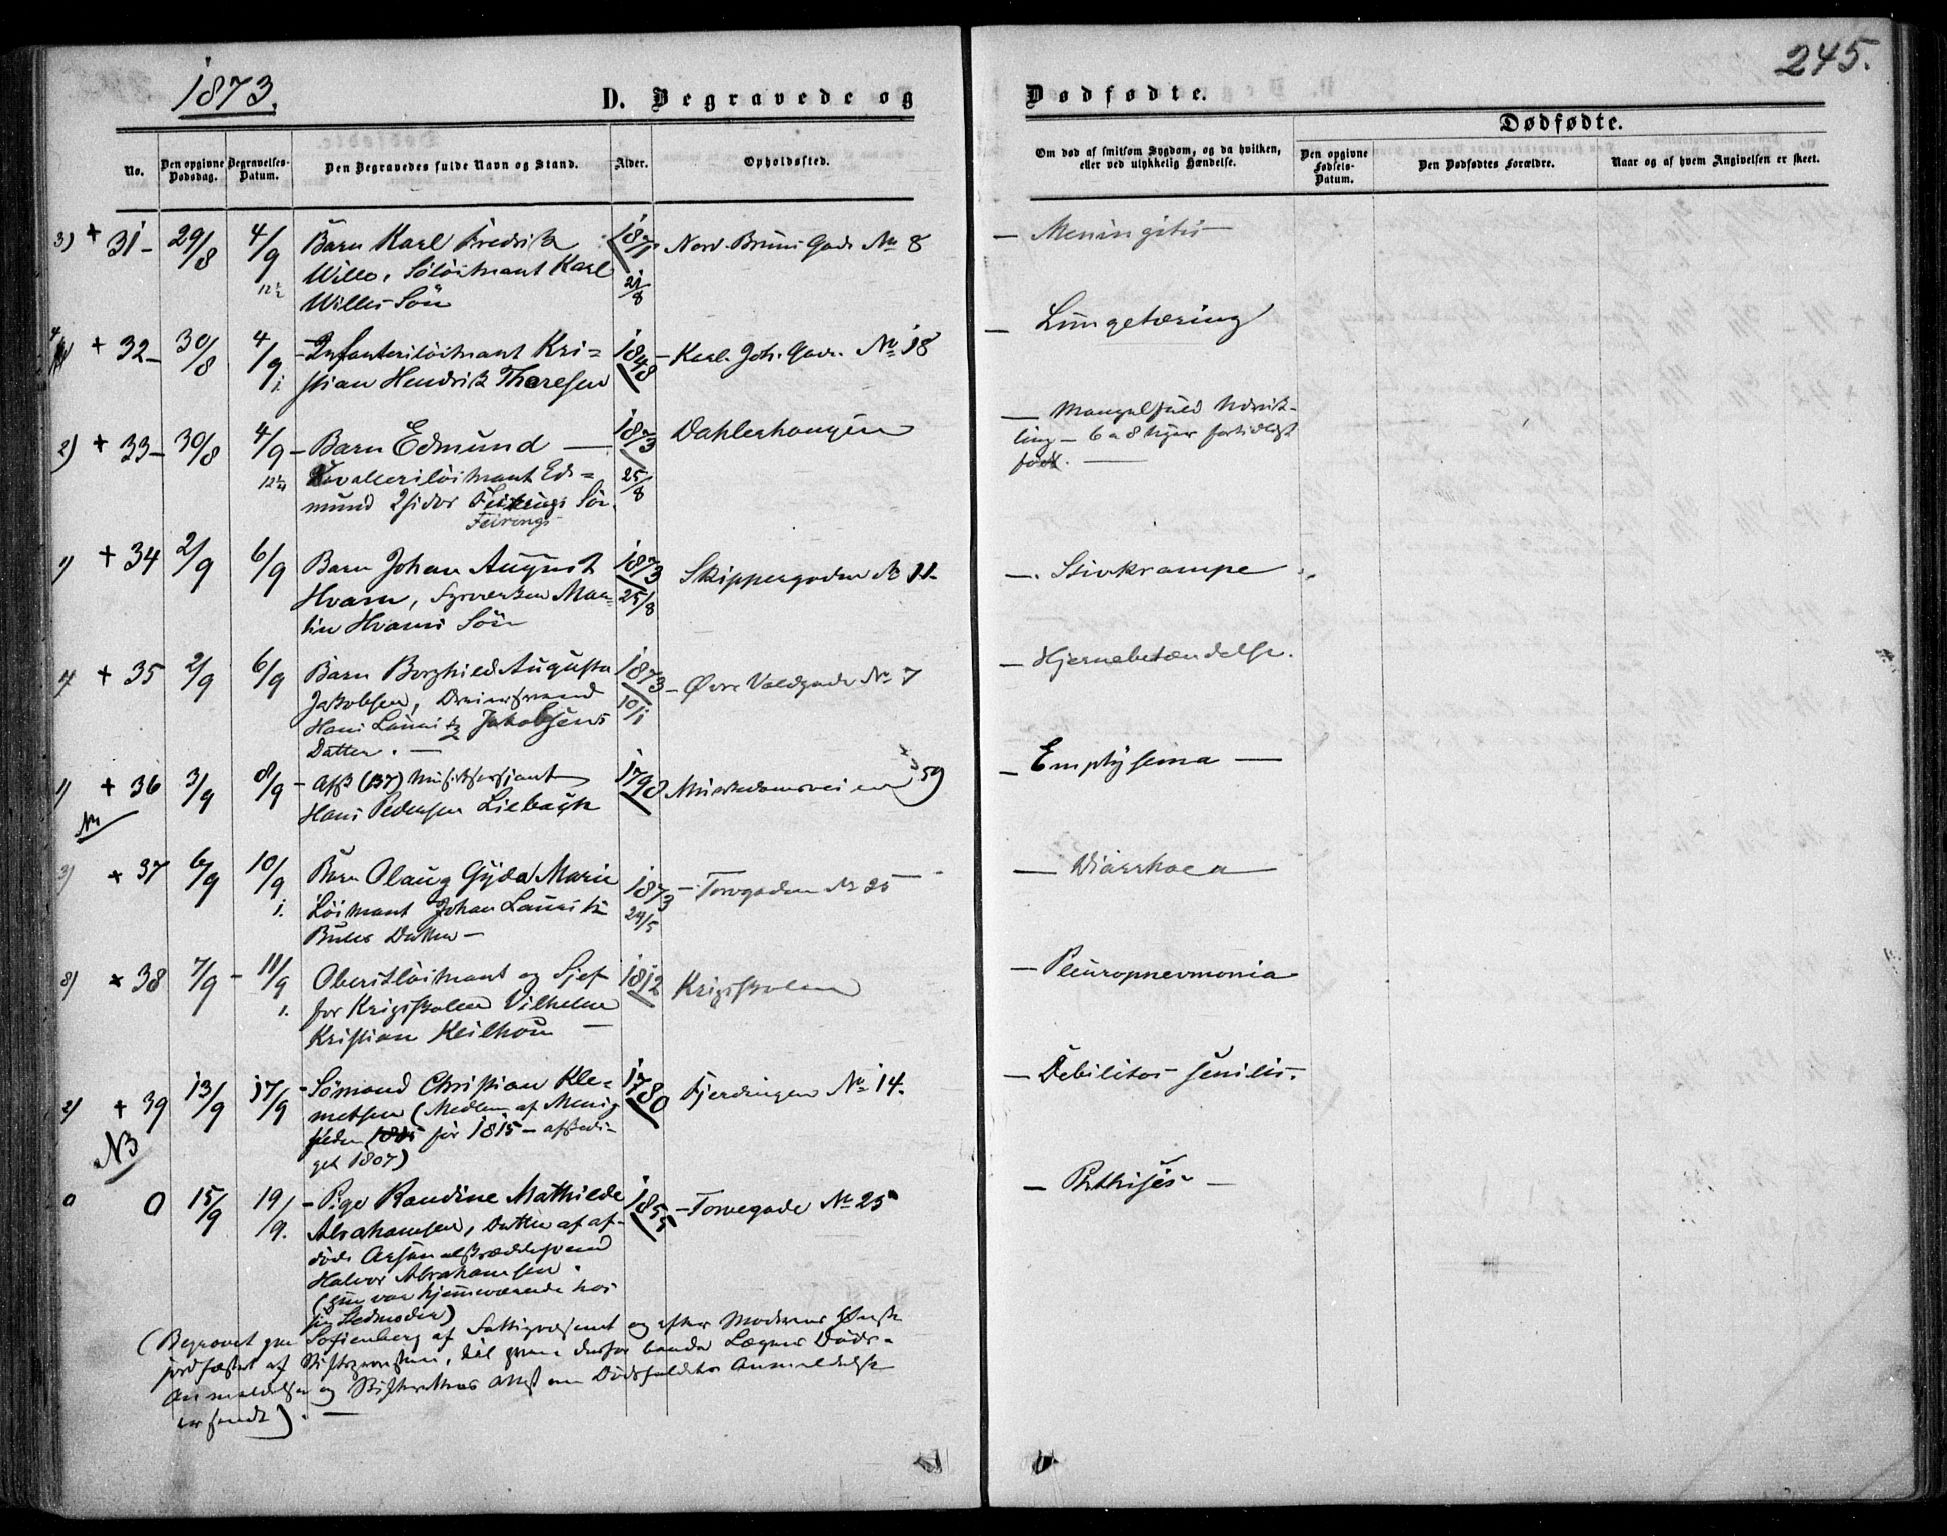 1873.
245.
D. Begravede og Dødfødte.
Dødfødte.
No.
Den opgivne Dødsdag.
Begravelses-Datum.
Den Begravedes fulde Navn og Stand.
Alder.
Opholdssted.
Om død af smitsom Sygdom, og da hvilken, eller ved ulykkelig Hændelse.
Den opgivne Fødsels-Datum.
Den Dødfødtes Forældre.
Naar og af hvem Angivelsen er skeet.
3) + 31 - 29/8 4/9 Barn Karl Fredrik 1871 Nord Bruns Gade No 8 — Meningitis —
12½ Wille, Söløitnant Karl 21/8
Willes Sön
4 + 32 - 30/8 4/9 - Infanteriløitnant Kri= 1848 - Karl Joh. Gade No 18 — Lungetæring
1. stian Hendrik Thoresen
2) + 33 - 30/8 4/9 - Barn Edmund — 1873 Dahlerhougen — Mangelfuld Udvik-
12½ Kavalleriløitnant Ed= 25/8 ling - 6 a 8 Uger fortidligt
mund Isidor Sön. født. —
Feirings
1) + 34 2/9 6/9 Barn Johan August 1873 Skippergaden No 11. — Stivkrampe
Hvam, Fyrværker Mar= 25/8
tin Hvams Sön
4 + 35 2/9 6/9 Barn Borghild Augusta 1873 - Øvre Voldgade No 7 — Hjernebetændelse.
Jakobsen, 10/1
Hans Lauritz Jakobsens
Datter. —
1) + 36 3/9 8/9 - Afsk (137) Musiksersjant 1798 59 — Emphysema —
Hans Pedersen
3) + 37 6/9 10/9 Barn Olaug Gyda Marie 1873 - Torvgaden No 25 — Diarrhoea
1. Løitnant Johan Lauritz 24/5
Bulls Datter —
8) + 38 7/9 - 11/9 Oberstløitnant og Sjef 1812 Krigsskolen — Pleuropnevmonia
1. for Krigsskolen Vilhelm
Kristian Keilhau —
2) + 39 13/9 17/9 - Sömand Christian Kle= 1780 Fjerdingen No 14. — Debilitas senilis.
NB metsen (Medlem af Menig
heden før 1815 - afskedi-
get 1807)
0 0 15/9 19/9. - Pige Randine Mathilde 1855 - Torvegade No 25 — Phthisis —
Abrahamsen, Datter af af-
døde
Halvor Abrahamsen.
(hun var hjemmeværende hos
sin Stedmoder)
(Begravet paa Sofienberg af Fattigvæsenet og efter Moderens Ønske
jordfæstet af Stiftsprovsten, til hvem derfor baade Lægens Døds-
Anmeldelse og Skifterettens Attest om Dødsfaldets Anmeldelse
er sendt). —